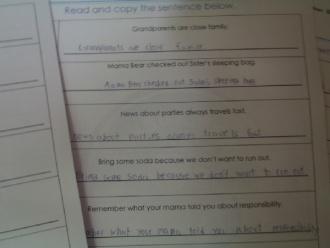 Read and copy the sentence below.
Grandparents are close family.
Grandparents are close
Mama Bear checked out Sister's sleeping bag.
Mama Bear checked out Sister's sleeping bag
News about parties always travels fast.
news about parties always travels fast
Bring some soda because we don't want to run out.
bring some soda because we don't want to run out
Remember what your mama told you about responsibility.
what your mama told you about responsibility